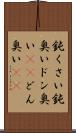 鈍くさい鈍
臭いドン臭
いどん
臭い